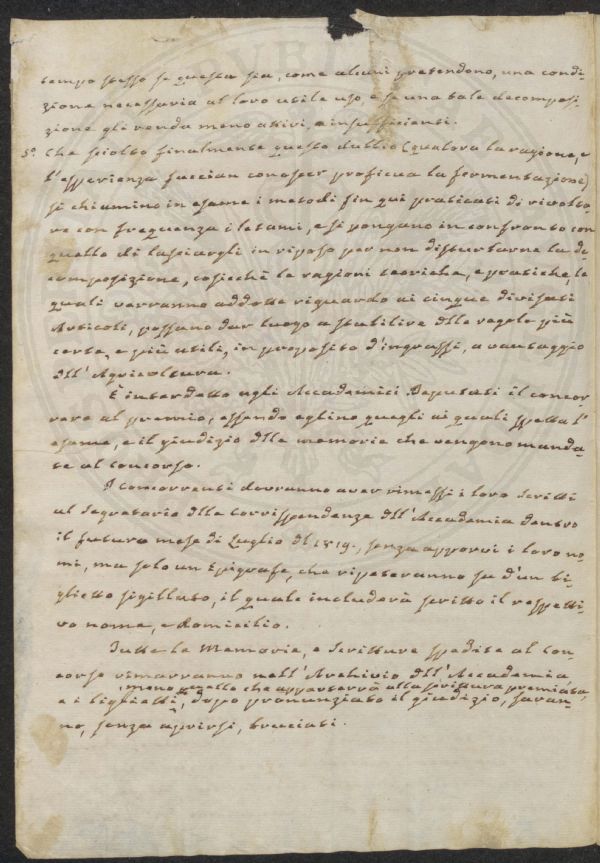 tempo stesso se questa sia, come alcuni pretendono, una condi-
zione necessaria al loro utile uso, e se una tale decomposi-
zione gli renda meno attivi, e insufficienti.
5°. Che sciolto finalmente questo dubbio (qualora la ragione, e
l'esperienza faccian conoscer proficua la fermentazione)
si chiamino in esame i metodi fin qui praticati di rivolta-
re con frequenza i letami, e si pongano in confronto con
quello di lasciargli in riposo per non disturbarne la de-
composizione, cosicchè le ragioni teoriche, e pratiche, le
quali verranno addotte riguardo ai cinque divisati
Articoli, possano dar luogo a stabilire dlle regole più
certe, e più utili, in proposito d'ingrassi, a vantaggio
dll'Agricoltura.
È interdetto agli Accademici Deputati il concor-
rere al premio, essendo eglino quegli ai quali spetta l'
esame, e il giudizio dlle memorie che vengono manda-
te al Concorso.
I Concorrenti dovranno aver rimessi i loro Scritti
al Segretario dlle Corrispondenze dll'Accademia dentro
il futuro mese di Luglio dl 1819., senza apporvi i loro no-
mi, ma solo un Epigrafe, che ripeteranno su d'un bi-
glietto sigillato, il quale includerà scritto il respetti-
vo nome, e Domicilio.
Tutte le Memorie, e Scritture spedite al Con-
corso rimarranno nell'Archivio dll'Accademia,
, meno quello che apparterrà alla scrittura premiata,
e i biglietti, dopo pronunziato il giudizio, saran-
no, senza aprirsi, bruciati.